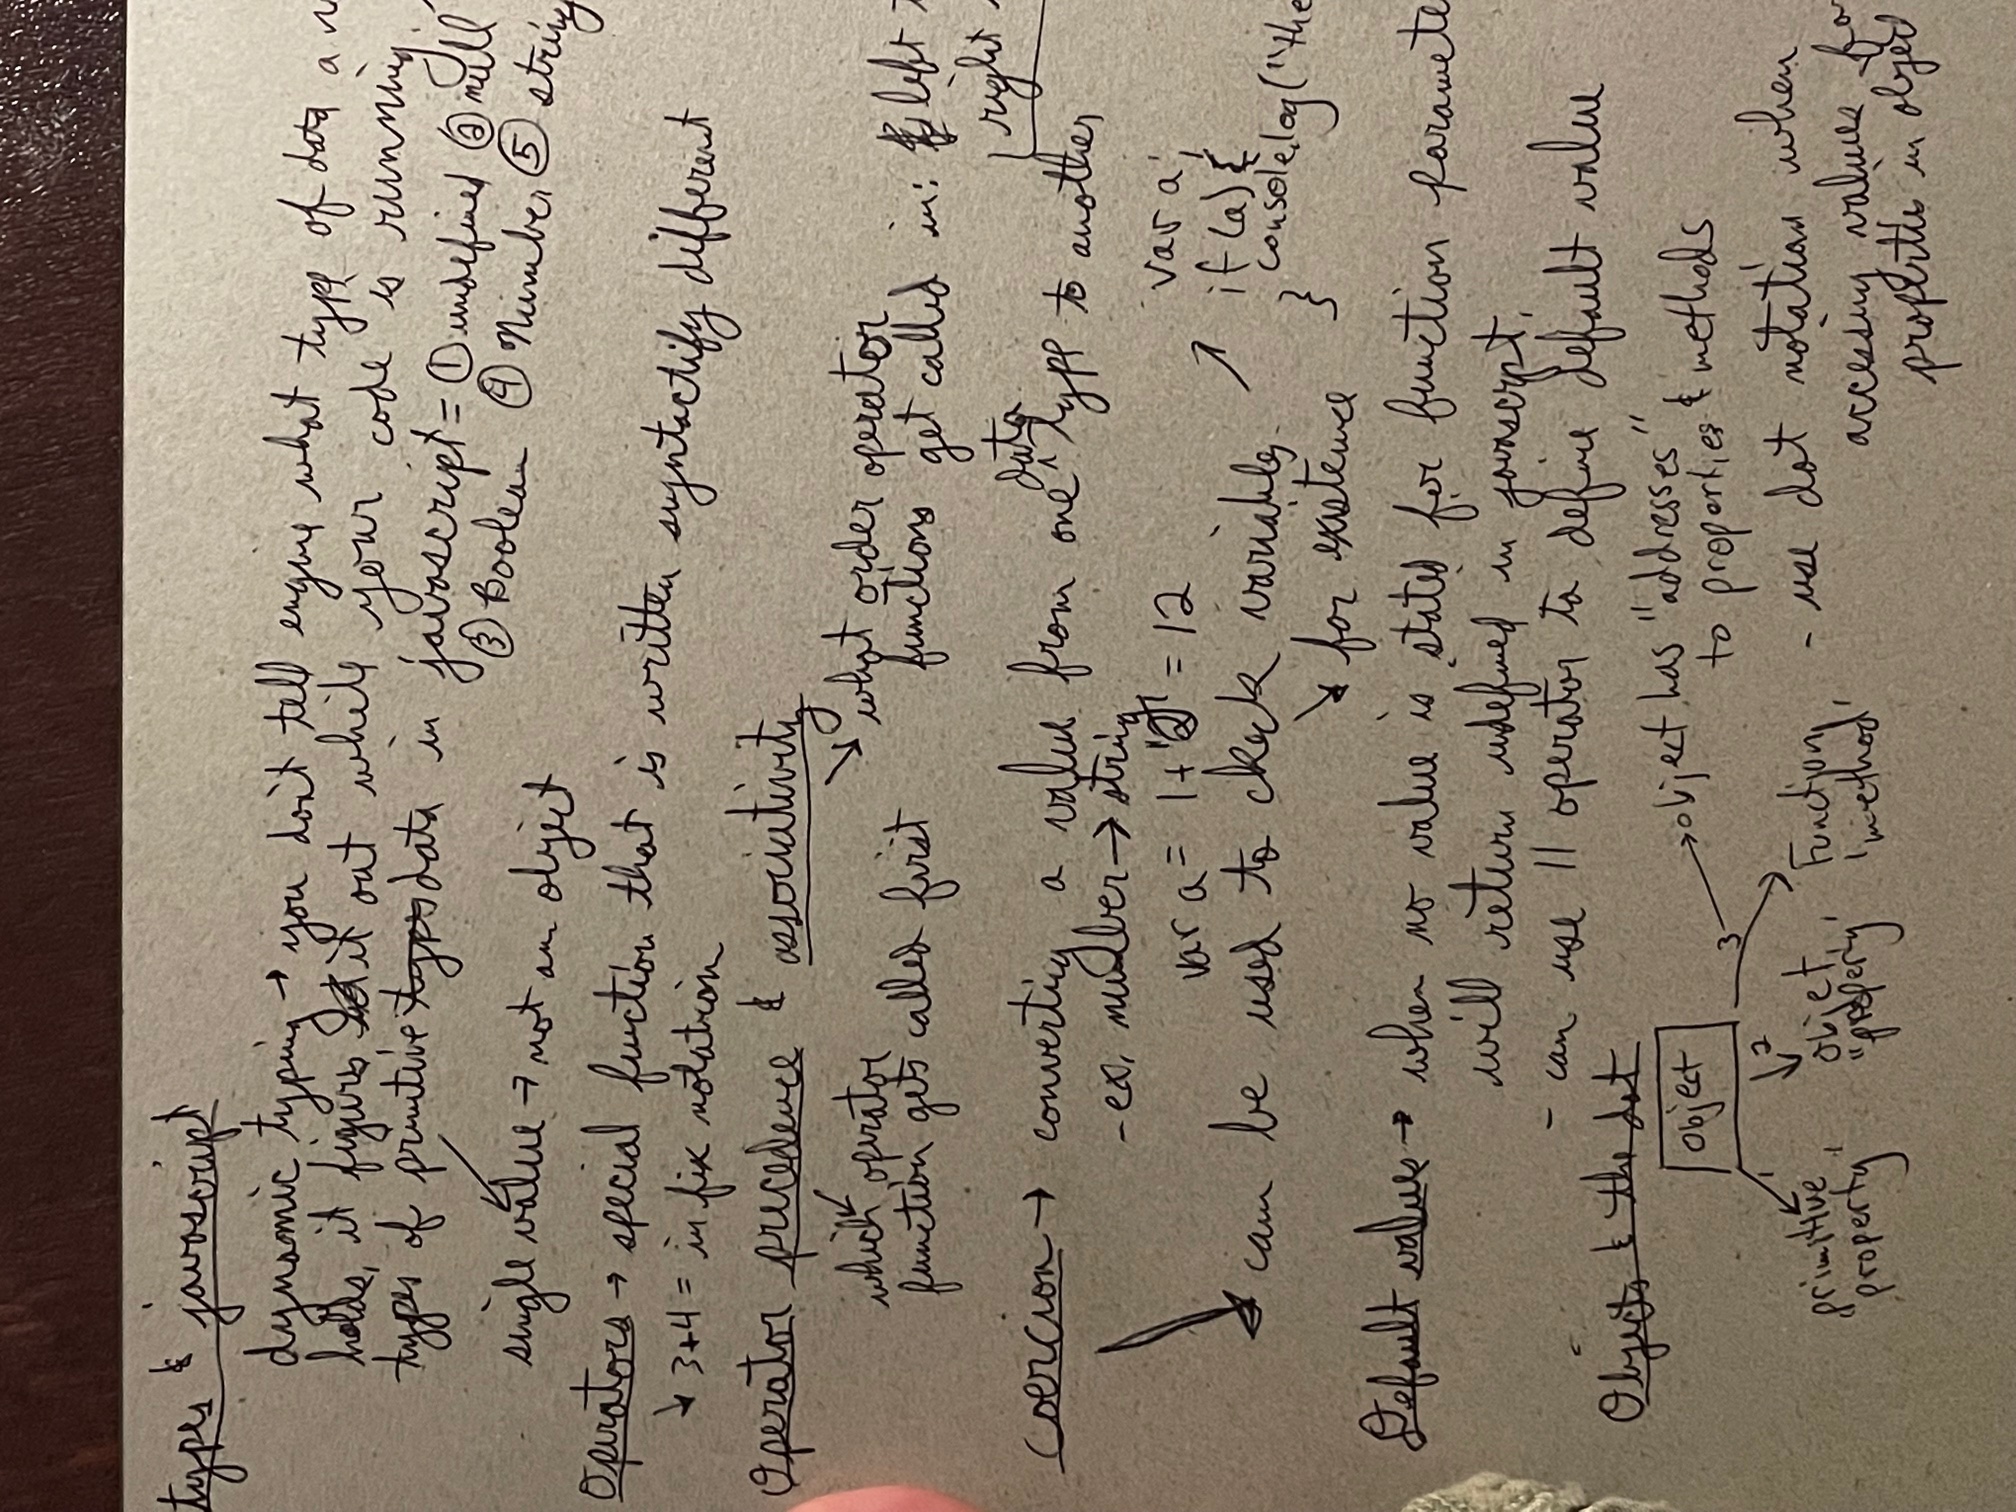 types & javascript
dynamic typing → you don't tell engine what type of data a
holds, it figures it out while your code is running.
types of primitive data in javascript = ① undefined ② null
③ Boolean ④ Number ⑤ string
single value → not an object
Operators → special function that is written syntactify different
↓ 3+4 = in fix notation
Operator precedence & associativity
which operator
function gets called first
what order operator
functions get called in: left
right
coercion → converting a value from one data type to another
- ex. number → string
var a = 1 + "2" = 12
can be used to check variables
for existence
var a;
if (a) {
console.log("the
}
Default values → when no value is stated for function paramete
will return undefined in javascrpt.
- can use || operator to define default value
Objects & the dot
object
1 2 3
object has "addresses"
to properties & methods
primitive
"property"
objet
"property"
Function
"method"
- use dot notation when
accessing values fo
properties in object